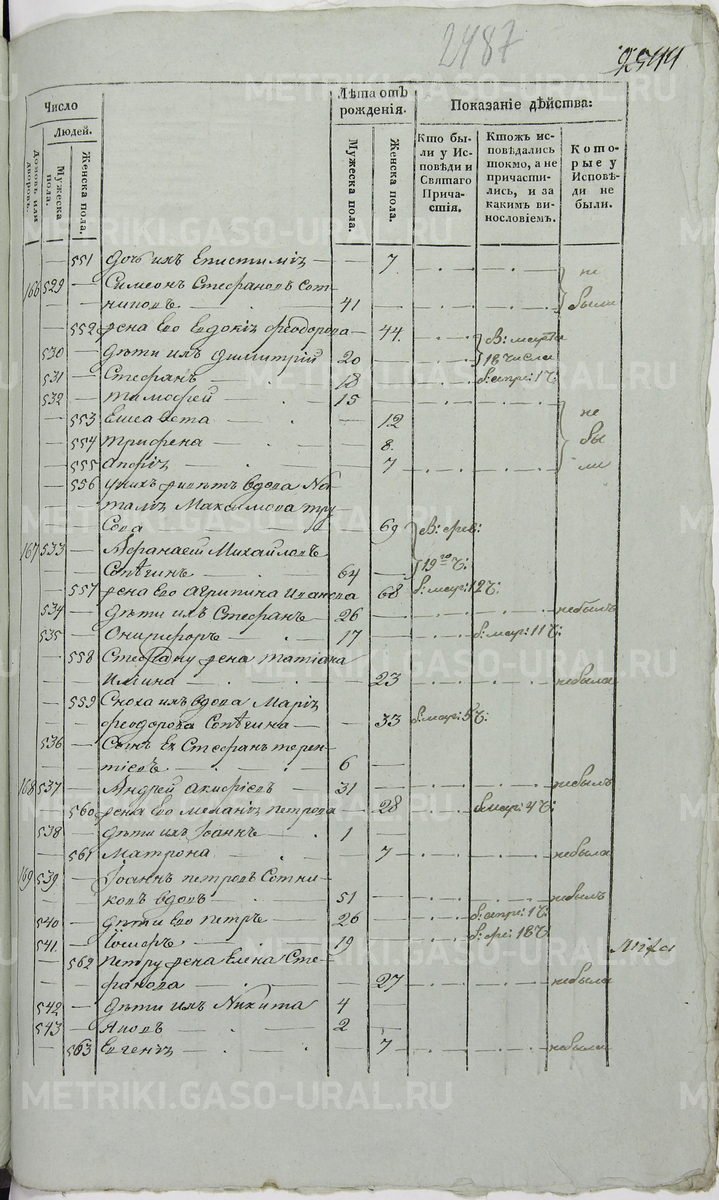 2487
2544
Число
Людей.
Домовъ или дворовъ.
Мужеска пола.
Женска пола.
Лѣта отъ рожденія.
Мужеска пола.
Женска пола.
Показаніе дѣйства:
Кто были у Исповѣди и Святаго Причастія.
Ктожъ исповѣдались токмо, а не причастились, и за какимъ винословіемъ.
Которые у Исповѣди не были.
551 дочь ихъ Епистимія 7 не
166 529 Симеонъ Стефановъ Сот-
никовъ 41 были
552 жена Его Евдокія Феодорова 44 В: марта
530 дѣти ихъ Димитрій 20 18 числа
531 Стефанъ 18 апре: 1 Ч:
532 Тимофей 15
553 Елисавета 12 не
554 Трифена 8 бы
555 7 ли
556 у нихъ живетъ вдова На-
талія Максимова Тру-
сова 69 В: фев:
167 533 Афанасей Михайловъ 19го Ч:
Сопѣгинъ 64
557 жена Его Агрипина Иванова 68 мар: 12 Ч:
534 дѣти ихъ Стефанъ 26 небылъ
535 Онисифоръ 17 мар: 11 Ч:
558 Стефану жена Татіана
Ильина 23 небыла
559 Сноха ихъ вдова Марія
Феодорова Сопѣгина 33 мар: 5 Ч:
536 Сынъ Ея Стефанъ Терен-
тіевъ 6
168 537 Андрей Акифіевъ 31 небылъ
560 жена Его Меланія Петрова 28 мар: 4 Ч:
538 дѣти ихъ Іоаннъ 1
561 Матрона 7 небыла
169 539 Іоаннъ Петровъ Сотни-
ковъ вдовъ 51 небылъ
540 дѣти Его Петръ 26 апре: 1 Ч:
541 19 фе: 18 Ч:
562 Петру жена Елена Сте-
фанова 27 небыла
542 дѣти ихъ Никита 4
543 Яковъ 2
563 Евгенія 7 небыла
METRIKI.GASO-URAL.RU